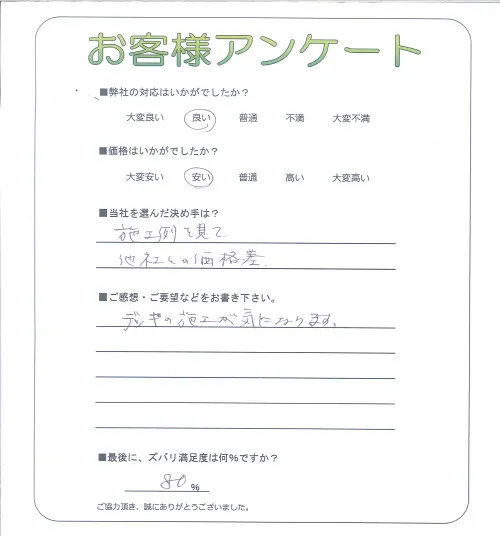 お客様アンケート
■弊社の対応はいかがでしたか?
大変良い 良い 普通 不満 大変不満
■価格はいかがでしたか?
大変安い 安い 普通 高い 大変高い
■当社を選んだ決め手は?
施工例を見て
他社との価格差.
■ご感想・ご要望などをお書き下さい。
デッキの施工が気になります。
■最後に、ズバリ満足度は何%ですか?
80 %
ご協力頂き、誠にありがとうございました。